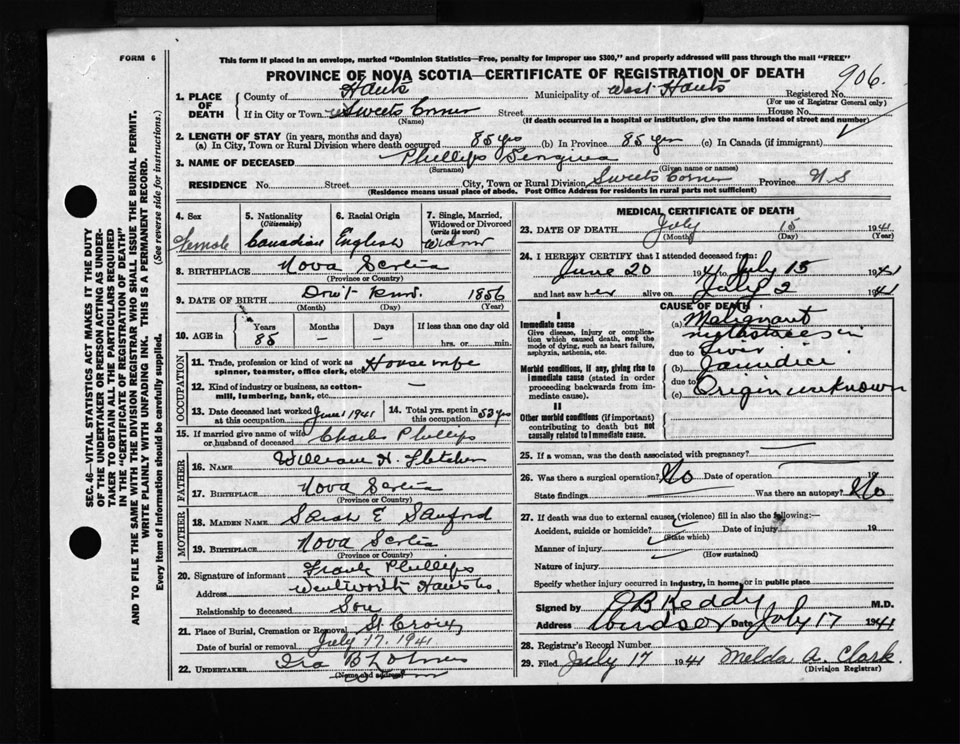 FORM 6
This form if placed in an envelope, marked "Dominion Statistics—Free, penalty for improper use $300," and properly addressed will pass through the mail "FREE"
PROVINCE OF NOVA SCOTIA—CERTIFICATE OF REGISTRATION OF DEATH
906.
1. PLACE OF DEATH
County of Hants Municipality of West Hants Registered No.
(For use of Registrar General only)
If in City or Town Sweets Corner Street House No.
(Name) (If death occurred in a hospital or institution, give the name instead of street and number)
2. LENGTH OF STAY (in years, months and days)
(a) In City, Town or Rural Division where death occurred 85 yrs (b) In Province 85 yrs (c) In Canada (if immigrant)
3. NAME OF DECEASED Phillips
(Surname) (Given name or names)
RESIDENCE No. Street City, Town or Rural Division Sweets Corner Province N S
(Residence means usual place of abode. Post Office Address for residents in rural parts not sufficient)
4. Sex Female
5. Nationality (Citizenship) Canadian
6. Racial Origin English
7. Single, Married, Widowed or Divorced (write the word) Widow
8. BIRTHPLACE Nova Scotia
(Province or Country)
9. DATE OF BIRTH Don't Know. 1856
(Month) (Day) (Year)
10. AGE in Years 85 Months — Days — If less than one day old
hrs. or min.
OCCUPATION
11. Trade, profession or kind of work as spinner, teamster, office clerk, etc.
12. Kind of industry or business, as cotton-mill, lumbering, bank, etc. —
13. Date deceased last worked at this occupation June 1 1941
14. Total yrs. spent in this occupation 53 yrs
15. If married give name of wife or husband of deceased Charles Phillips
FATHER
16. NAME William H. Fletcher
17. BIRTHPLACE Nova Scotia
(Province or Country)
MOTHER
18. MAIDEN NAME Sarah E Sanford
19. BIRTHPLACE Nova Scotia
(Province or Country)
20. Signature of informant Frank Phillips
Address Wentworth Hants Co.
Relationship to deceased Son
21. Place of Burial, Cremation or Removal St. Croix
Date of burial or removal July 17. 1941
22. UNDERTAKER Ira B
(Name and address)
MEDICAL CERTIFICATE OF DEATH
23. DATE OF DEATH July 15 1941
(Month) (Day) (Year)
24. I HEREBY CERTIFY that I attended deceased from:
June 20 1941 to July 15 1941
and last saw her alive on July 2 1941
CAUSE OF DEATH
I
Immediate cause
Give disease, injury or complication which caused death, not the mode of dying, such as heart failure, asphyxia, asthenia, etc.
(a) Malignant metastases in
due to Liver.
Morbid conditions, if any, giving rise to immediate cause (stated in order proceeding backwards from immediate cause)
(b) Jaundice
due to
(c) Origin unknown
II
Other morbid conditions (if important) contributing to death but not causally related to immediate cause.
25. If a woman, was the death associated with pregnancy? —
26. Was there a surgical operation? No Date of operation 19
State findings Was there an autopsy? No
27. If death was due to external causes (violence) fill in also the following:—
Accident, suicide or homicide? Date of injury 19
(State which)
Manner of injury
(How sustained)
Nature of injury
Specify whether injury occurred in industry, in home, or in public place
Signed by O B Keddy M.D.
Address Windsor Date July 17 1941
28. Registrar's Record Number
29. Filed July 17 1941 Melda A. Clark.
(Division Registrar)
SEC. 46—VITAL STATISTICS ACT MAKES IT THE DUTY
OF THE UNDERTAKER OR PERSON ACTING AS UNDER-
TAKER TO OBTAIN ALL THE PARTICULARS REQUIRED
IN THE "CERTIFICATE OF REGISTRATION OF DEATH"
AND TO FILE THE SAME WITH THE DIVISION REGISTRAR WHO SHALL ISSUE THE BURIAL PERMIT.
WRITE PLAINLY WITH UNFADING INK. THIS IS A PERMANENT RECORD.
Every item of information should be carefully supplied. (See reverse side for instructions.)